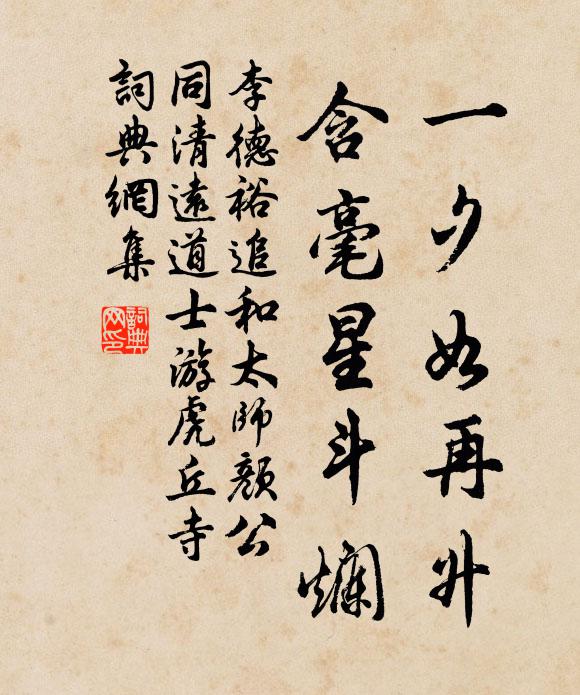 一夕如再升
含毫星斗爛
李德裕追和太師顏公
同清遠道士游虎丘寺
詞典網集
詞典
网印